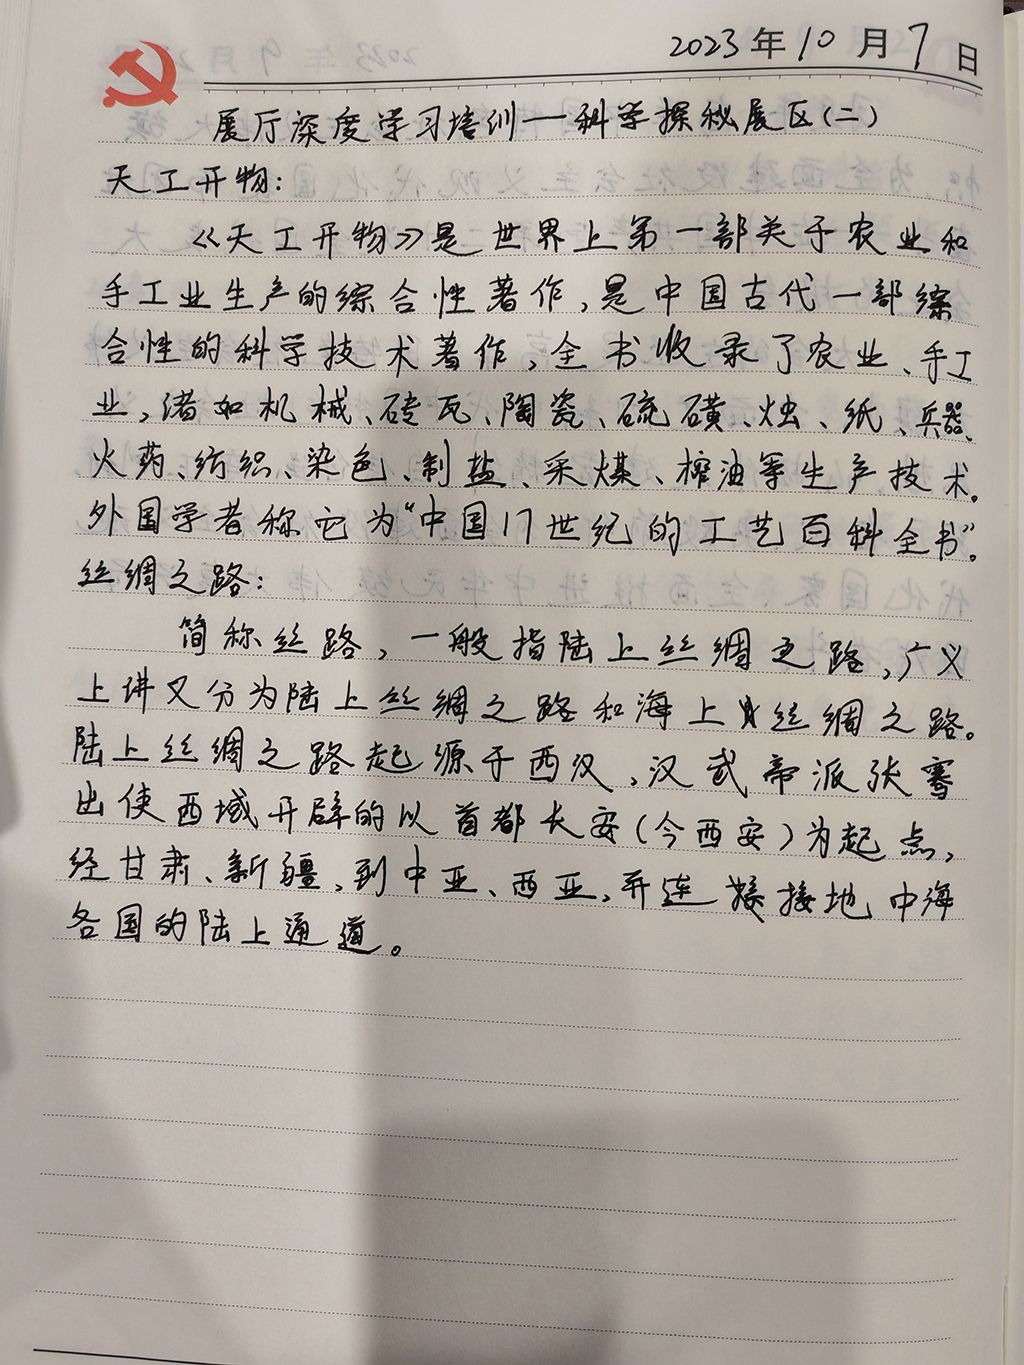 2023年10月7日
展厅深度学习培训—科学探秘展区(二)
天工开物:
《天工开物》是世界上第一部关于农业和
手工业生产的综合性著作,是中国古代一部综
合性的科学技术著作,全书收录了农业、手工
业,诸如机械、砖瓦、陶瓷、硫磺、烛、纸、兵器、
火药、纺织、染色、制盐、采煤、榨油等生产技术。
外国学者称它为“中国17世纪的工艺百科全书”。
丝绸之路:
简称丝路,一般指陆上丝绸之路,广义
上讲又分为陆上丝绸之路和海上丝绸之路。
陆上丝绸之路起源于西汉,汉武帝派张骞
出使西域开辟的以首都长安(今西安)为起点,
经甘肃、新疆,到中亚、西亚,并连接地中海
各国的陆上通道。